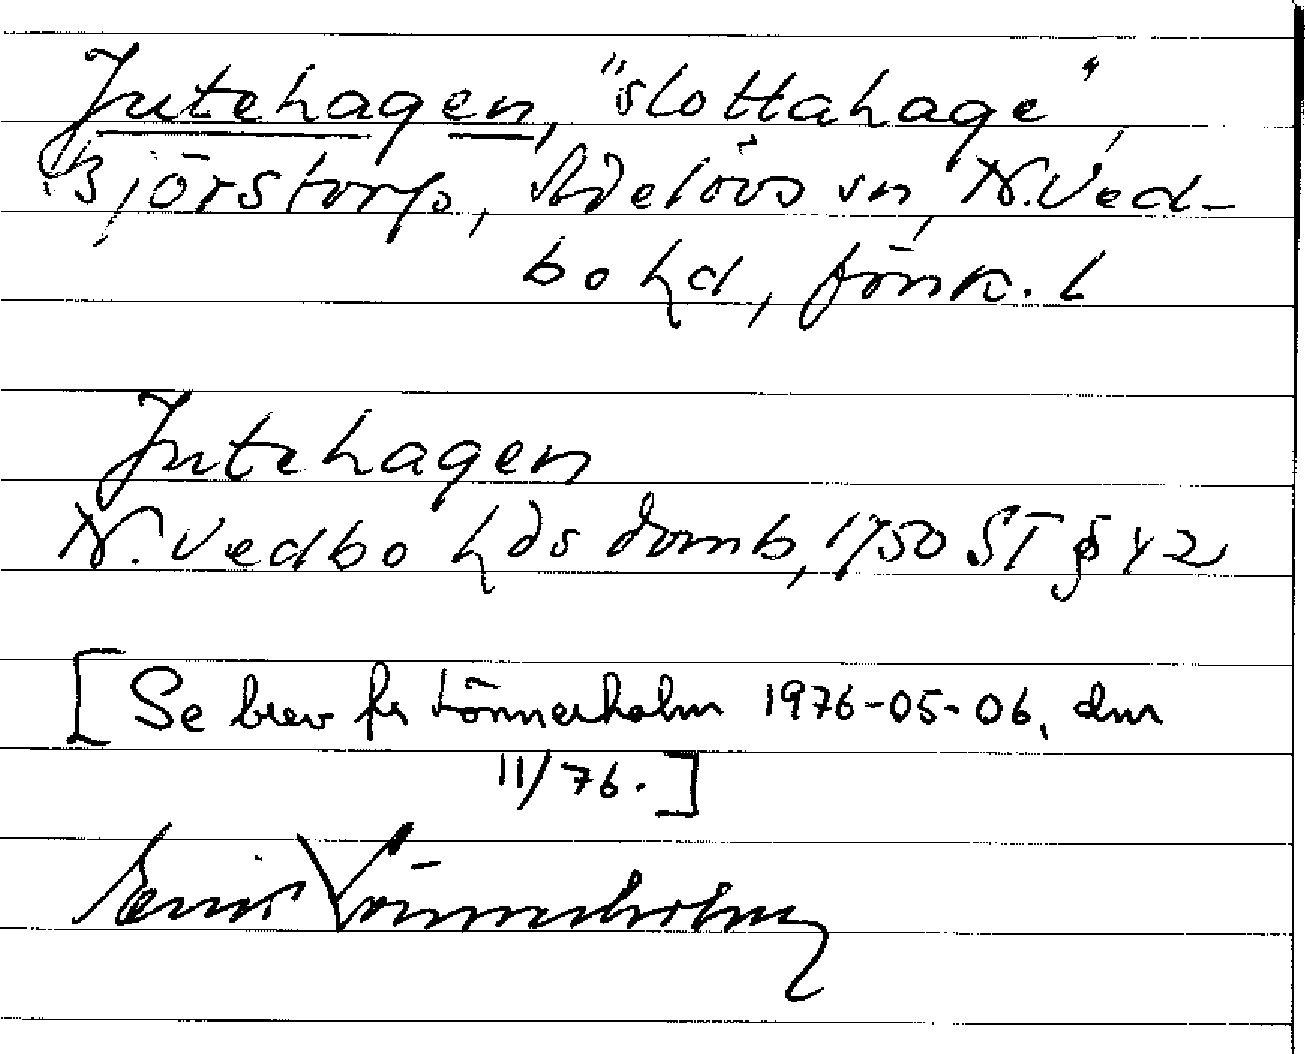 Jutehagen, "slottahage",
Björstorp, Adelövs sn, N. Ved-
bo hd, Jönk. l
Jutehagen
N. Vedbo hds domb, 1750 ST § 42
[Se brev fr Lönnerholm 1976-05-06, dnr
11/76.]
Erik Lönnerholm